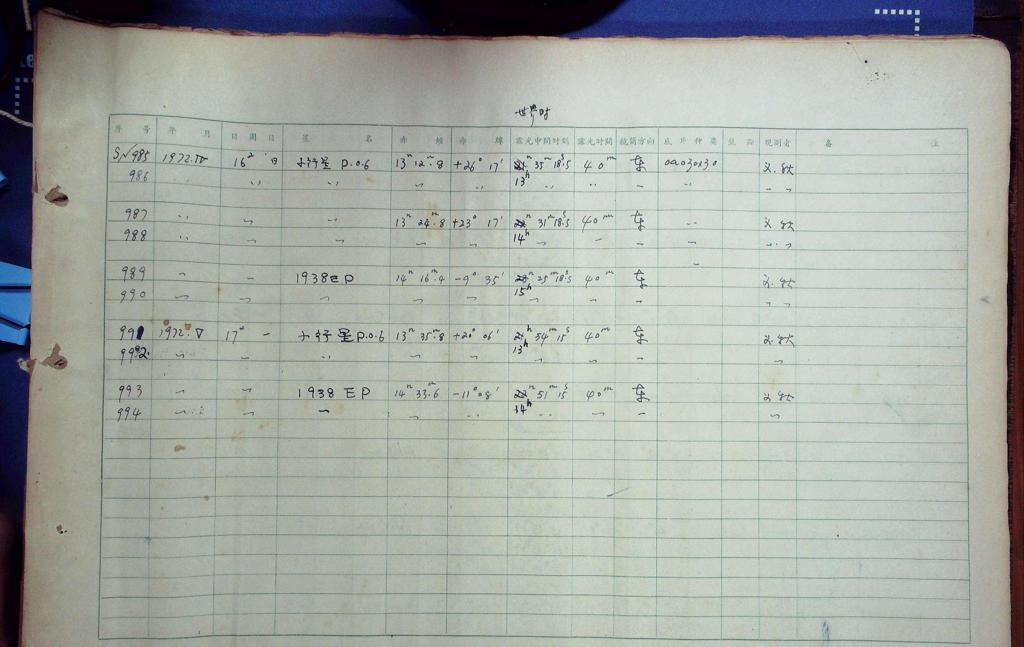 世界时
序号 年月 日期日 星名 赤经 赤纬 露光中间时刻 露光时间 镜筒方向 底片种类 观测者 备注
SN985 1972.IV 16 小行星 P.O.6 13ʰ 12ᵐ.8 +26° 17′ 13ʰ 35ᵐ 18ˢ.5 40ᵐ 东 0A03030
986 〃 〃 〃 〃 〃 〃 〃 〃 〃 〃
987 〃 〃 〃 13ʰ 24ᵐ.8 +23° 17′ 14ʰ 31ᵐ 18ˢ.5 40ᵐ 东 〃
988 〃 〃 〃 〃 〃 〃 〃 〃 〃 〃
989 〃 〃 1938EP 14ʰ 16ᵐ.4 -9° 35′ 15ʰ 25ᵐ 18ˢ.5 40ᵐ 东
990 〃 〃 〃 〃 〃 〃 〃 〃 〃
991 1972.V 17 〃 小行星 P.O.6 13ʰ 35ᵐ.8 +20° 06′ 13ʰ 54ᵐ 15ˢ 40ᵐ 东
992 〃 〃 〃 〃 〃 〃 〃 〃 〃
993 〃 〃 1938 EP 14ʰ 33ᵐ.6 -11° 08′ 14ʰ 51ᵐ 15ˢ 40ᵐ 东
994 〃 〃 〃 〃 〃 〃 〃 〃 〃